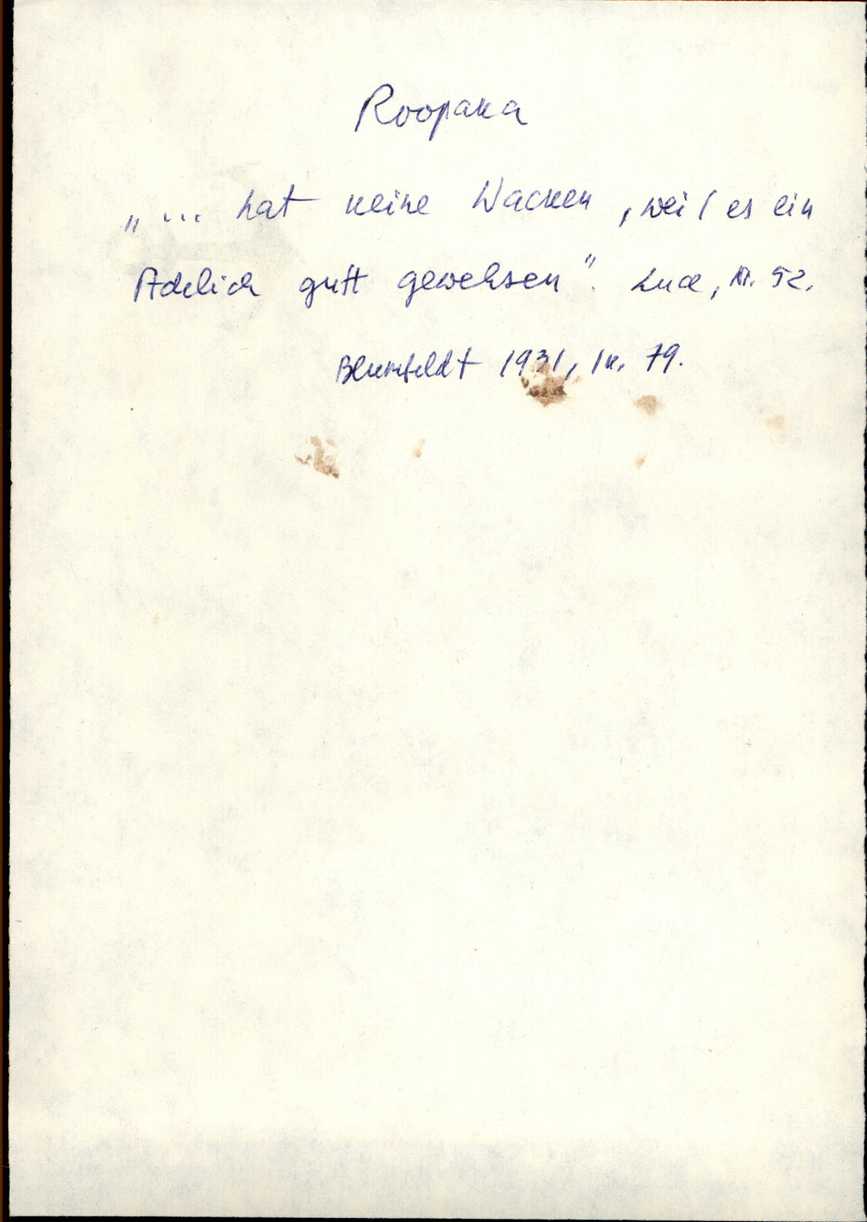 Roopaka
„... hat keine Wacken, weil es ein
Adelich gutt gewehsen". Luce, lk. 52.
Blumfeldt 1931, lk. 79.